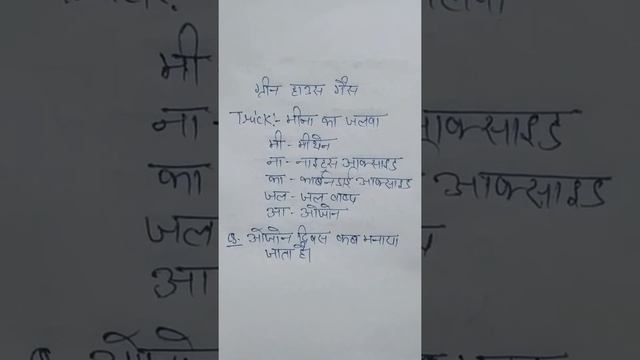 ग्रीन हाउस गैस
Trick:- मीना का जलवा
मी - मीथेन
ना - नाइट्रस आक्साइड
का - कार्बनडाई आक्साइड
जल - जल वाष्प
आ - ओजोन
Q. ओजोन दिवस कब मनाया
जाता है।